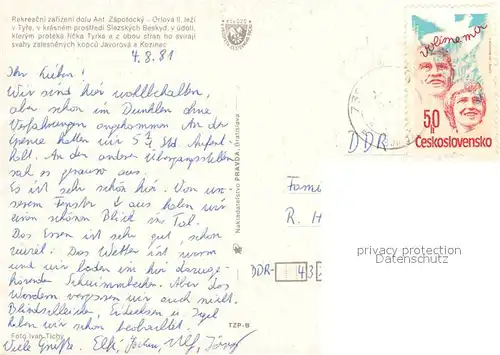 Rekreační zařízení dolu Ant. Zápotocký - Orlová II. leží
v Tyře, v krásném prostředí Slezských Beskyd, v údolí,
kterým protéká říčka Tyrka a z obou stran ho svírají
svahy zalesněných kopců Javorová a Kozinec
4.8.81
Ihr Lieben!
Wir sind hier wohlbehalten,
aber schon im Dunklen ohne
Verfahrungen angekommen. An der
Grenze hatten wir 5 1/4 Std. Aufent
halt. An den anderen Übergangsstellen
sah es genauso aus.
Es ist sehr schön hier. Von un-
serem Fenster aus haben wir
einen schönen Blick ins Tal.
Das Essen ist sehr gut, schon
zuviel. Das Wetter ist warm
und wir baden im hier dazuge-
hörenden Schwimmbecken. Aber das
Wandern vergessen wir auch nicht.
Blindschleichen, Eidechsen u. Igel
haben wir schon beobachtet.
Viele Grüße. Elfi, Jochen, Ulf,
Foto Ivan Tichý
TZP-B
Nakladatelstvo PRAVDA, Bratislava
volíme mír
50 h
Československo
DDR
Fami
R. H
DDR- 43
privacy protection
Datenschutz